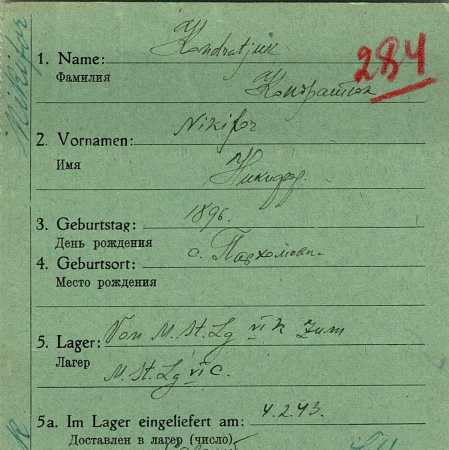 Nikifor
1. Name: Kondratjuk
Фамилия
284
Кондратюк
2. Vornamen: Nikifor
Имя
Никифор.
3. Geburtstag: 1896.
День рождения
4. Geburtsort: с.
Место рождения
5. Lager: Von M. St. Lg VI K zum
Лагер
M. St. Lg VI C.
5a. Im Lager eingeliefert am: 4.2.43.
Доставлен в лагер (число)